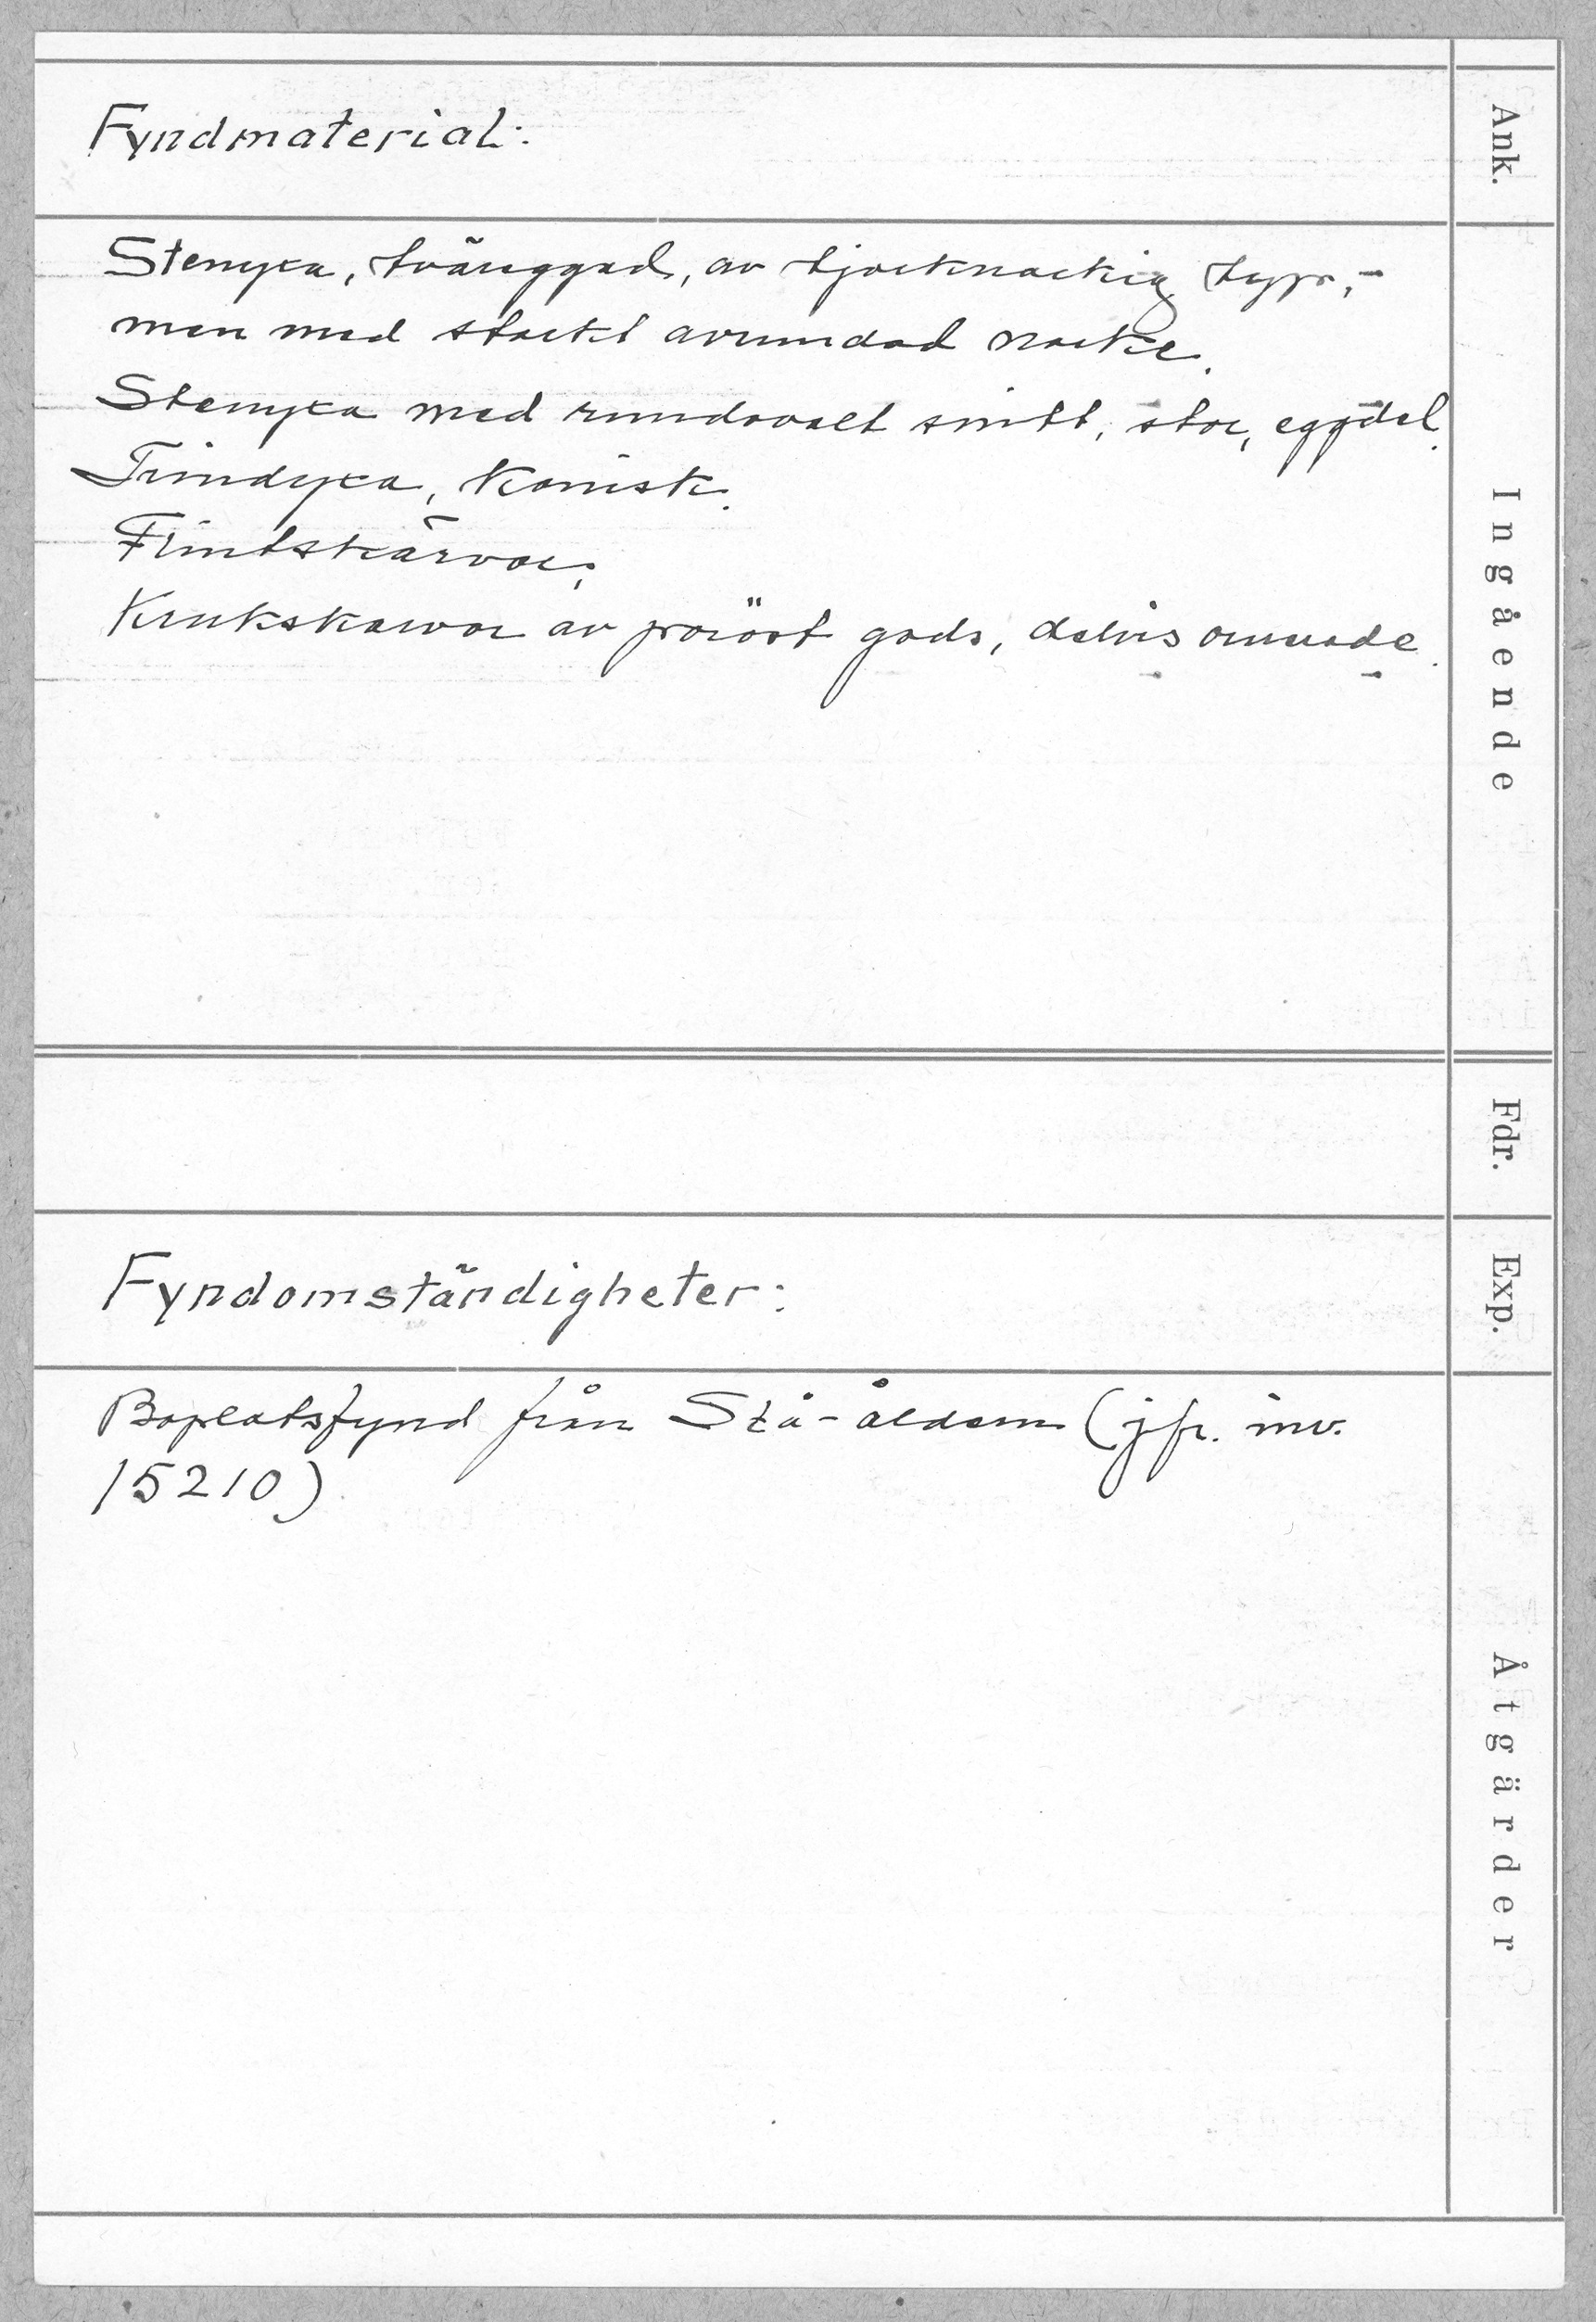 Fyndmaterial:
Stenyxa, tväreggad, av tjocknackig typ,-
men med starkt avrundad nacke.
Stenyxa med rundovalt snitt, stor, eggdel.
Trindyxa, konisk.
Flintskärvor.
Krukskärvor av poröst gods, delvis ornerade.
Fyndomständigheter:
Boplatsfynd från Stå-åldern (jfr. inv.
15210)
Ank.
Ingående
Fdr.
Exp.
Åtgärder